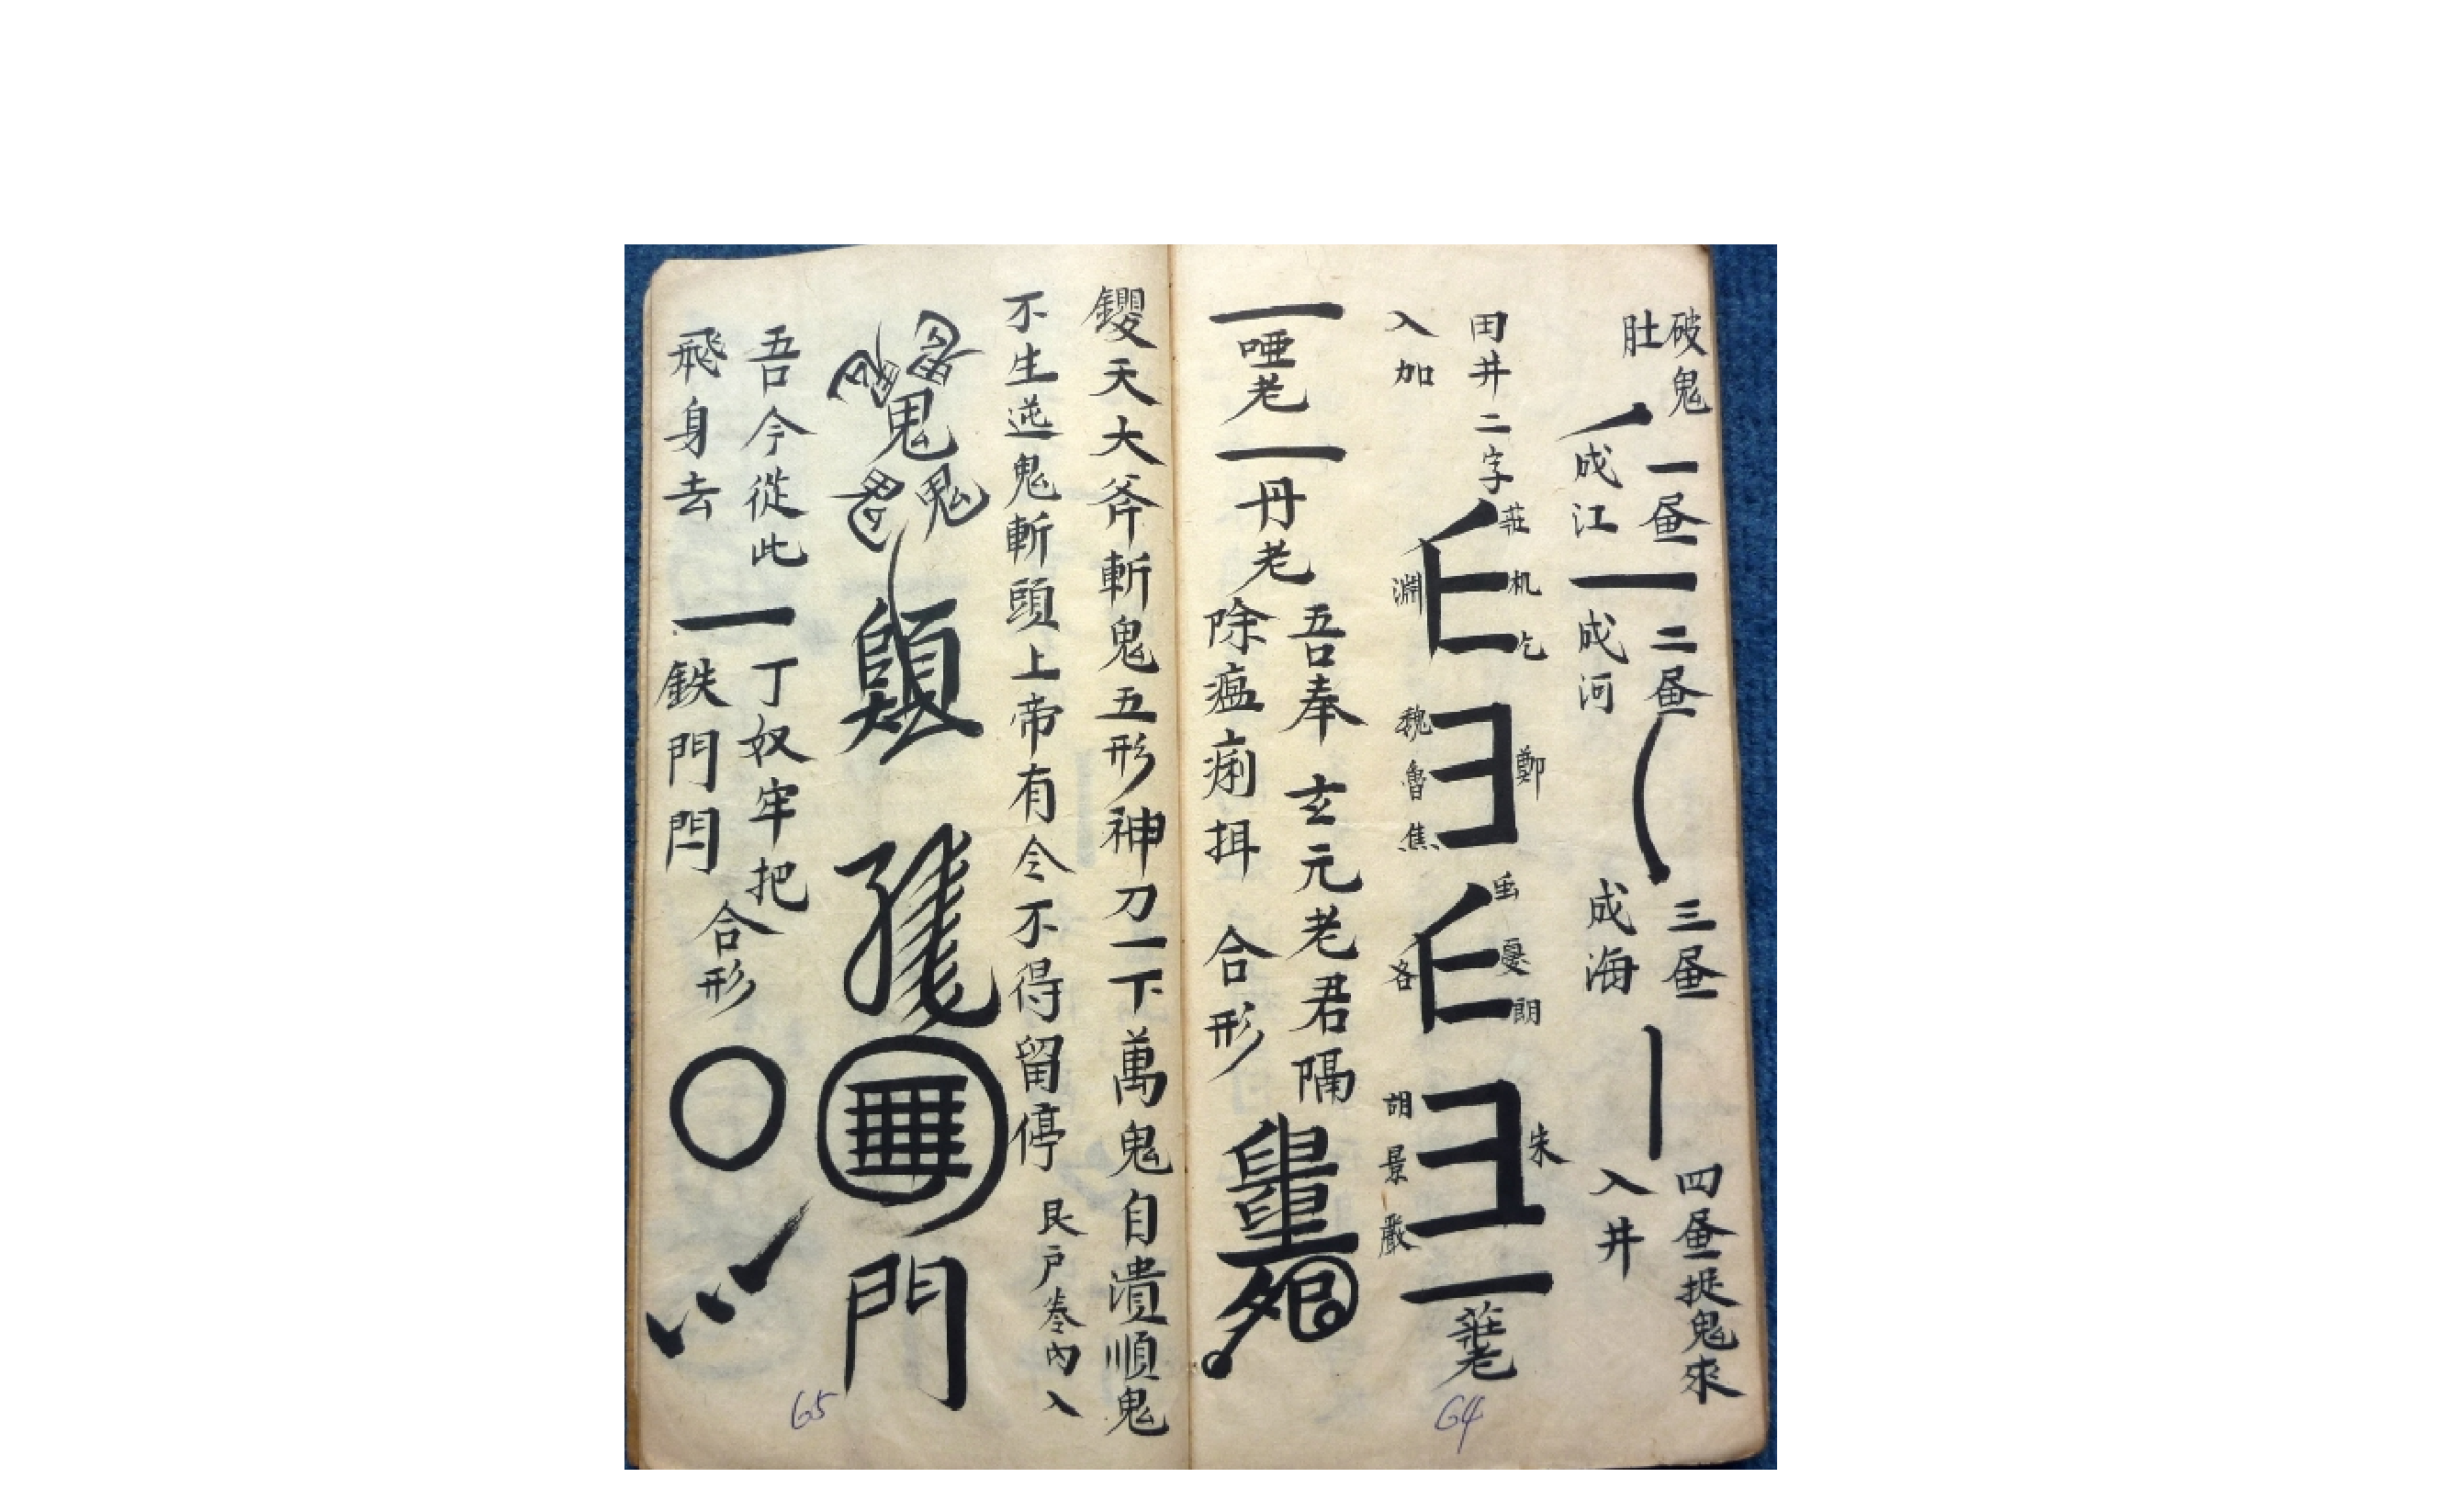 破鬼
肚
一昼
成江
二昼
成河
三昼
成海
四昼捉鬼來
入井
田井二字
入加
莊
机
淵
魏
魯
焦
鄭
戛
朗
各
胡
景
嚴
朱
唖老
丹老
吾奉玄元老君隔
除瘟痢
合形
64
天大斧斬鬼五形神刀一下萬鬼自潰順鬼
不生逆鬼斬頭上帝有令不得留停
艮户
内入
鬼
鬼
鬼
門
吾今從此
飛身去
一丁奴牢把
鉄門閂
合形
65